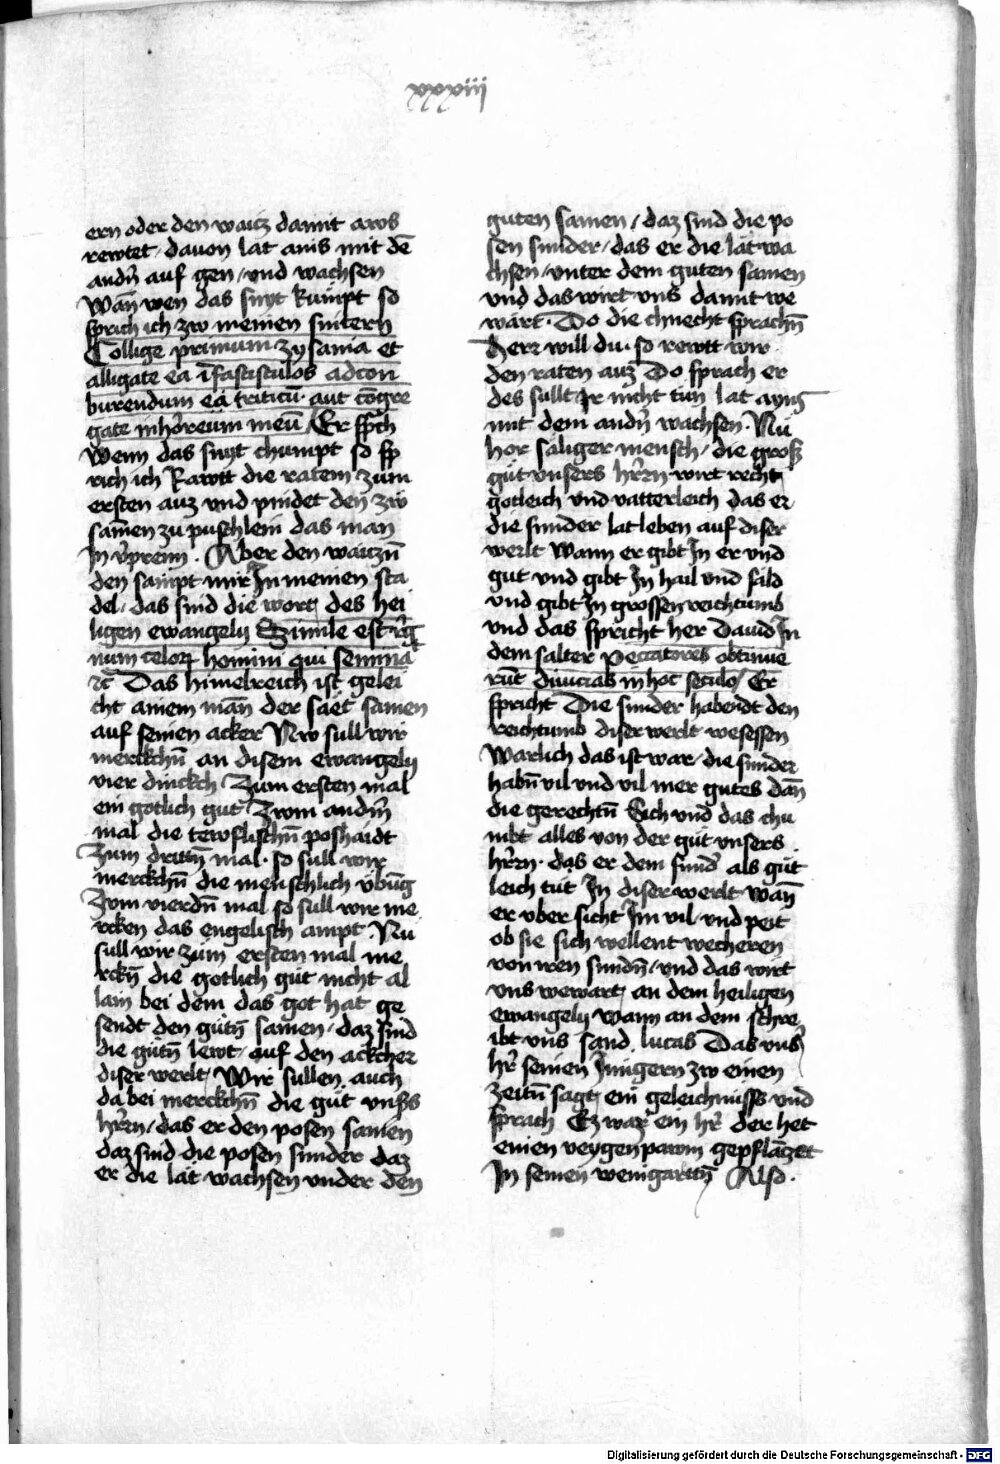 xxxiii
ern oder den waicz damit aws
rewtet / davon lat ains mit dē
andn̄ auf gen / vnd wachsen
Wan̄ wen das snyt kumpt so
sprich ich zw meinen snitern
Collige primum zysania et
alligate ea ī fasciculos ad con
burendum ea triticū aut cōgre
gate in horreum meū / Er spch
Wenn das snyt chumpt so sp
rich ich Rawtt die ratem zum
ersten auz vnd pindet den zw
samen zu puschlein das man
In v̄prenn . Aber den waiczn̄
den sampt mir In meinen sta
del / das sind die wort des hei
ligen ewangely Simile est rēg
num celorꝝ homini qui semina
rc̄ Das himelreich ist gelei
cht ainem man̄ der sáet samen
auf seinen acker Nw sull wir
merckchn̄ an disem ewangely
vier dinckch / Zum ersten mal
ein gotlich gut / Zwm andn̄
mal die tewflischn̄ poshaidt
Zum drittn̄ mal . so sull wir
merckchn̄ die menschlich v̈būg
Zvm vierdn̄ mal so sull wir me
rcken das engelisch ampt . Nu
sull wir züm ersten mal me
rckn̄ die gotlich güt nicht al
lain bei dem das got hat ge
sendt den gütn̄ samen / daz sind
die gütn̄ lewt / auf den ackcher
diser werlt / Wir sullen auch
da bei merckchn̄ die güt vnsers
hr̄rn / das er den posen samen
daz sind die posen sunder daz
er die lät wachsen vnder den
guten samen / daz sind die po
sen sunder / das er die lat wa
chsen / vnter dem guten samen
vnd das wirt vns damit we
wart . Do die chnecht sprachn̄
Herr will du . so rewtt wir
den raten auz Do sprach er
des sullt Ir nicht tun lat ayns
mit dem andn̄ wachsen . Nu
hor saliger mensch / die gross
güt vnsers hr̄rn wirt recht
gotleich vnd vatterleich das er
die sunder lat leben auf diser
werlt Wann er gibt In er vnd
gut vnd gibt In hail vnd säld
vnd gibt In grossen reichtumb
vnd das spricht her Dauid In
dem salter Peccatores obtinue
runt diuicias in hoc seculo / Er
spricht Die sunder habendt den
reichtumb diser werlt wesessen
Warlich das ist war / die sunder
habn̄ vil vnd vil mer gutes dan̄
die gerechtn̄ Sich vnd das chu
mbt alles von der güt vnsers
hr̄rn . das er dem sund̄ als güt
leich tüt In diser werlt Wan̄
er vber sicht Im vil vnd peit
ob sie sich wellent wecheren
von iren sundn̄ / vnd das wirt
vns wewart an dem heiligen
ewangely Wann an dem schre
ibt vns sand lucas Das vns̄
hr̄ seinen Jungern zw einen
zeitn̄ sagt ein geleichnuss vnd
sprach Ez war ein hr̄ der het
einen veygenpawm gepflāczet
In seinen weingartn̄ Also .
Digitalisierung gefördert durch die Deutsche Forschungsgemeinschaft - DFG